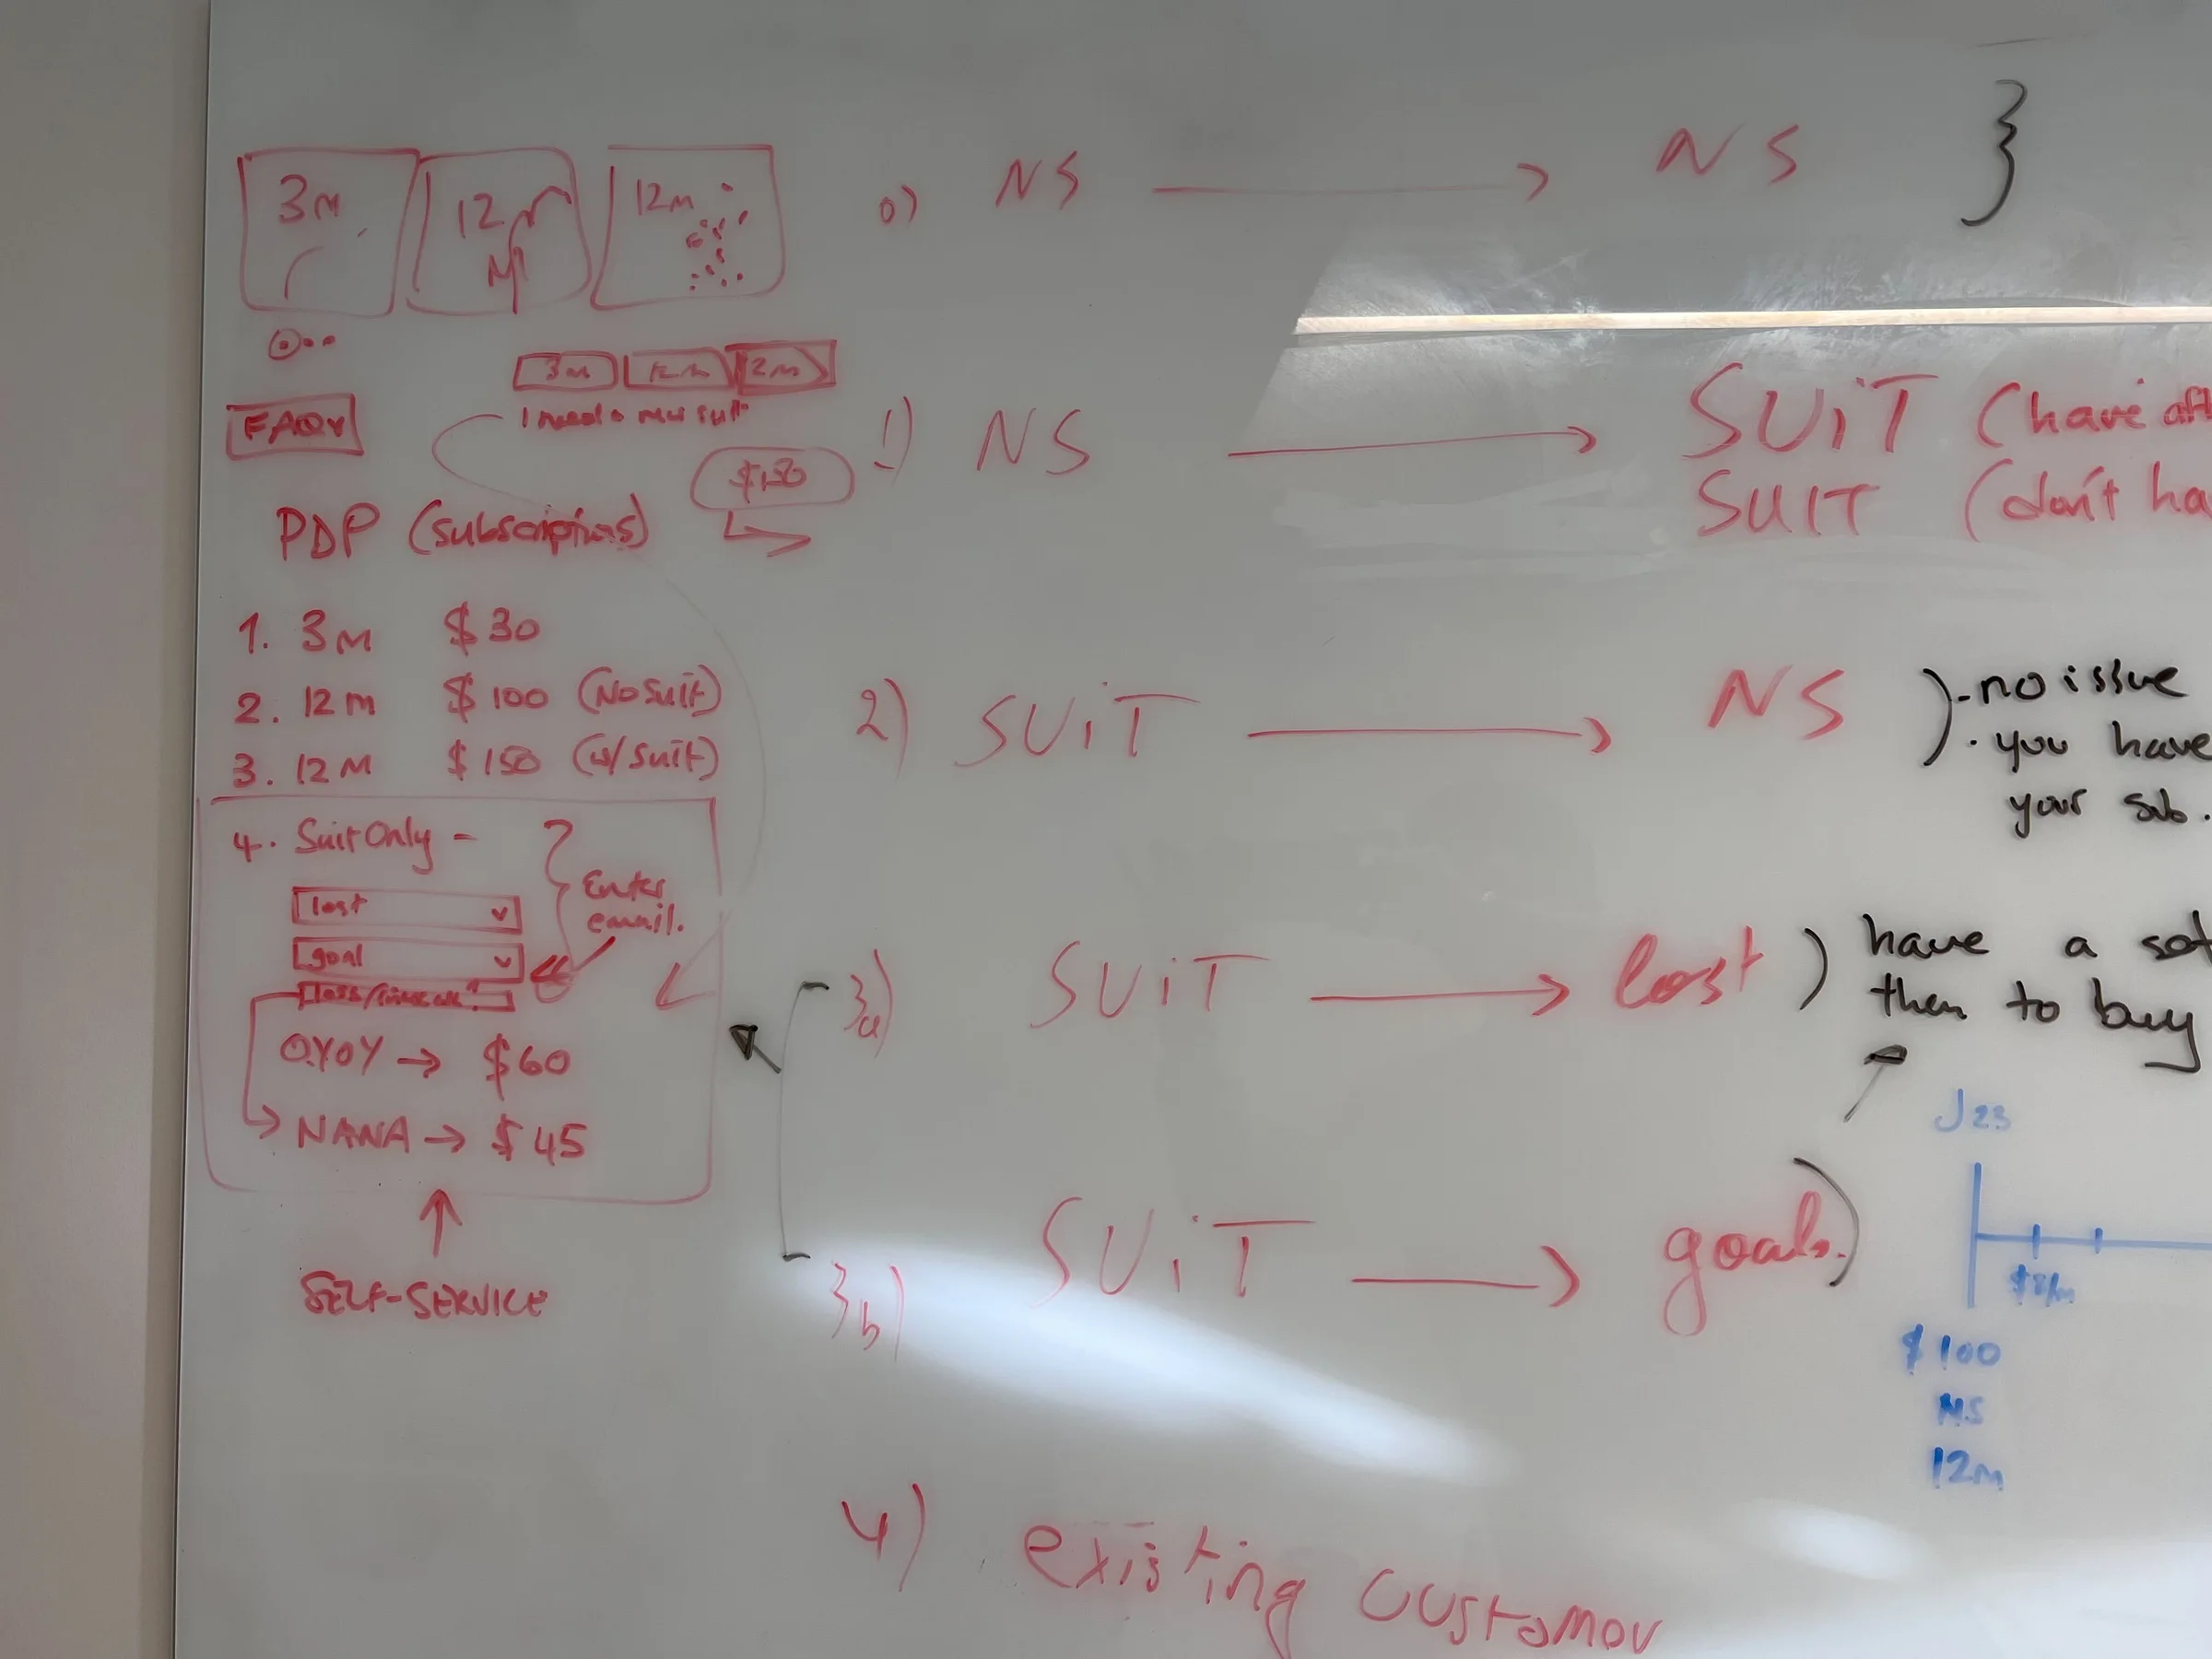 3m
12m
12m
3m
12m
12m
I need a new suit
FAQs
$150
PDP (subscriptions)
1. 3m $30
2. 12m $100 (No Suit)
3. 12m $150 (w/ suit)
4. Suit Only -
Enter
email.
lost
goal
OYOY → $60
NANA → $45
SELF-SERVICE
0) NS → NS }
1) NS → SUiT (have
SUIT (don't
2) SUiT → NS ) - no issue
· you have
your sub.
3a) SUiT → lost ) have a
then to buy
3b) SUiT → goals. )
4) existing customer
J23
$8/m
$100
NS
12m